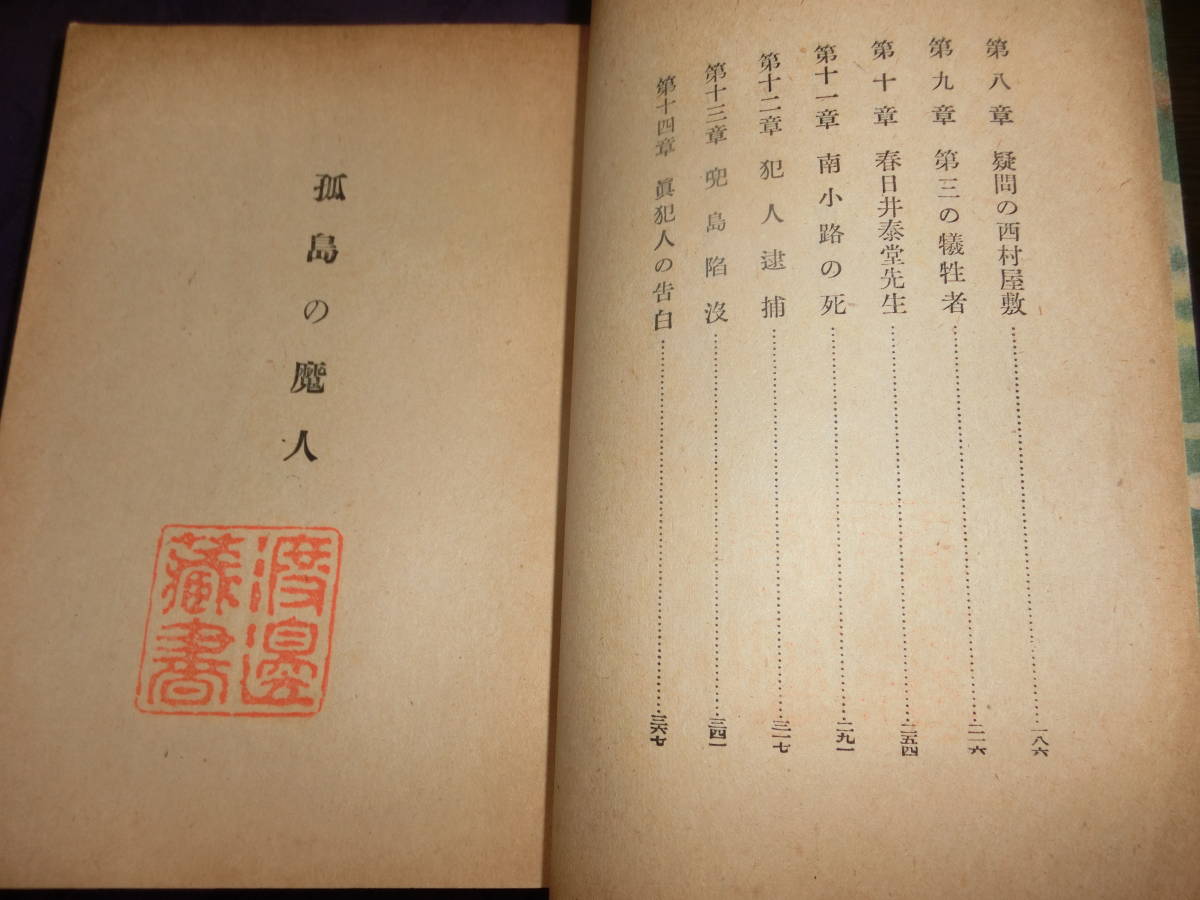 第八章 疑問の西村屋敷……一八六
第九章 第三の犧牲者……二一六
第十章 春日井泰堂先生……二五四
第十一章 南小路の死……二九一
第十二章 犯人逮捕……三一七
第十三章 兜島陷沒……三四一
第十四章 眞犯人の告白……三六七
孤島の魔人
渡邊
藏書